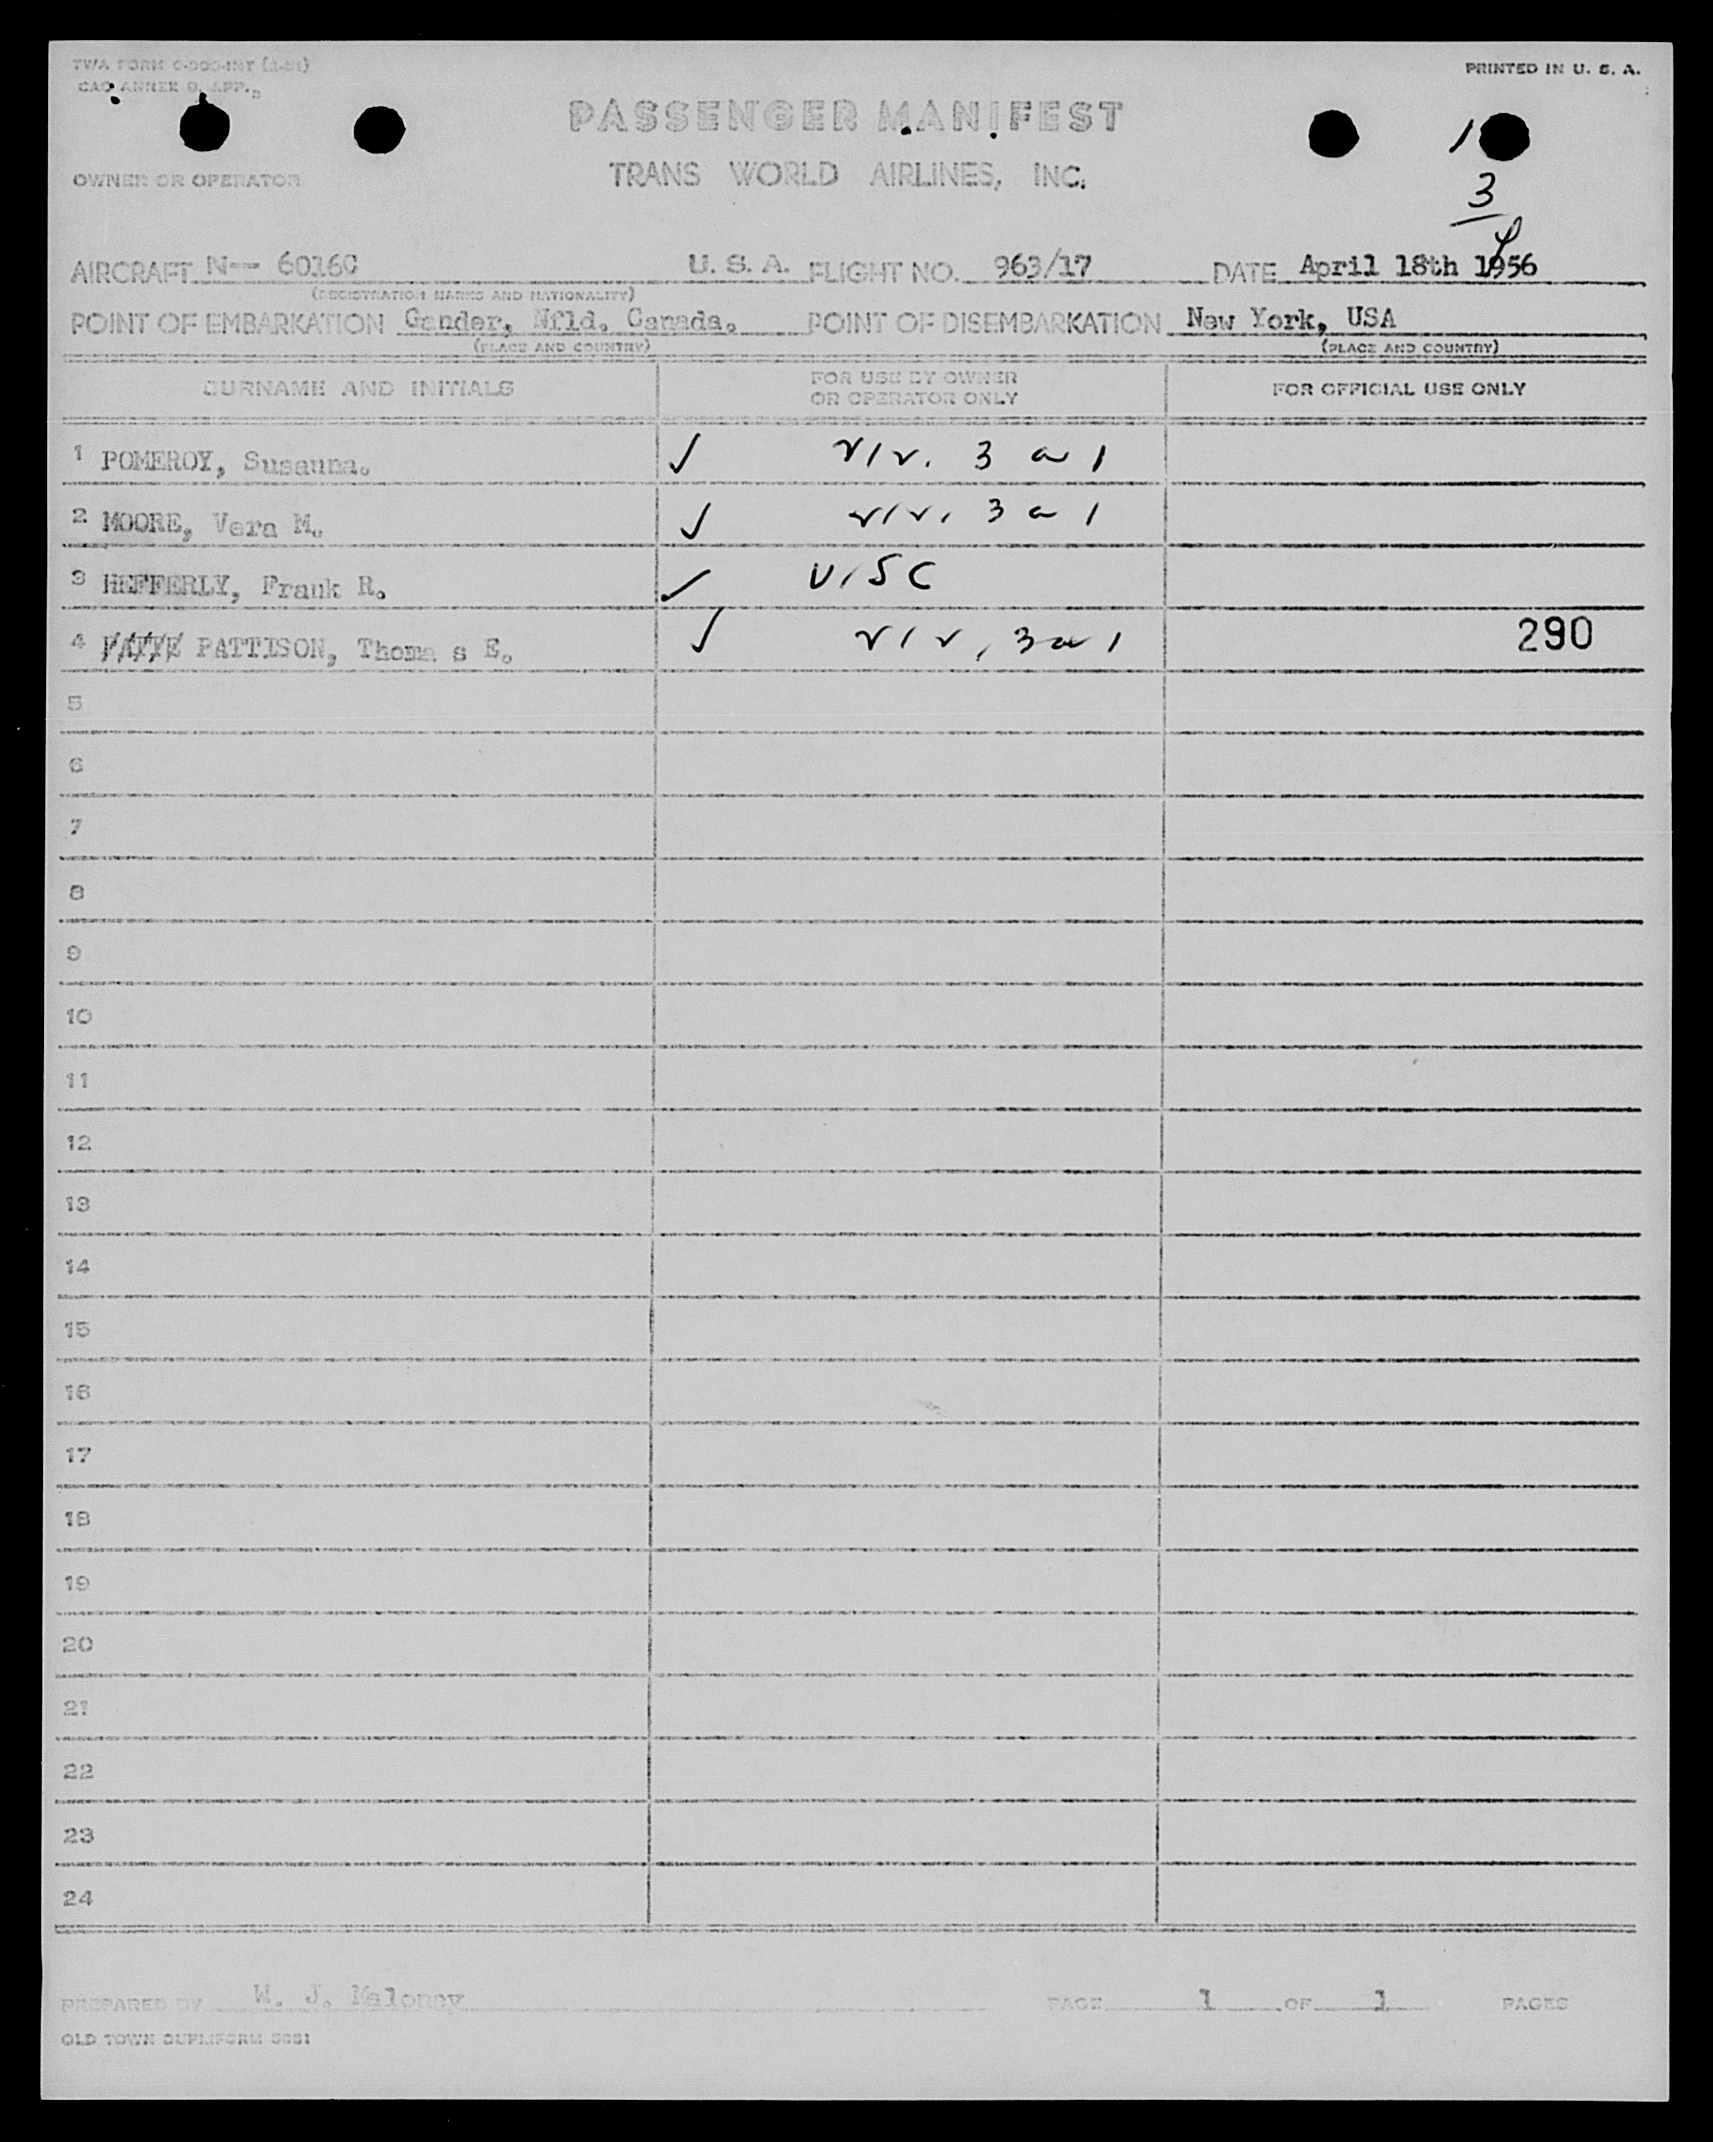 PRINTED IN U. S. A.
PASSENGER MANIFEST
TRANS WORLD AIRLINES, INC.
OWNER OR OPERATOR
1
3
AIRCRAFT N-- 6016C U. S. A. FLIGHT NO. 963/17 DATE April 18th 1956
(REGISTRATION MARKS AND NATIONALITY)
POINT OF EMBARKATION Gander, Nfld. Canada. POINT OF DISEMBARKATION New York, USA
(PLACE AND COUNTRY) (PLACE AND COUNTRY)
SURNAME AND INITIALS FOR USE BY OWNER OR OPERATOR ONLY FOR OFFICIAL USE ONLY
1 POMEROY, Susanna. ✓ 3 a 1
2 MOORE, Vera M. ✓ 3 a 1
3 HEFFERLY, Frank R. ✓ U/SC
4 PATTISON, Thoma s E. ✓ 3 a 1 290
5
6
7
8
9
10
11
12
13
14
15
16
17
18
19
20
21
22
23
24
PREPARED BY W. J. Maloney PAGE 1 OF 1 PAGES
OLD TOWN